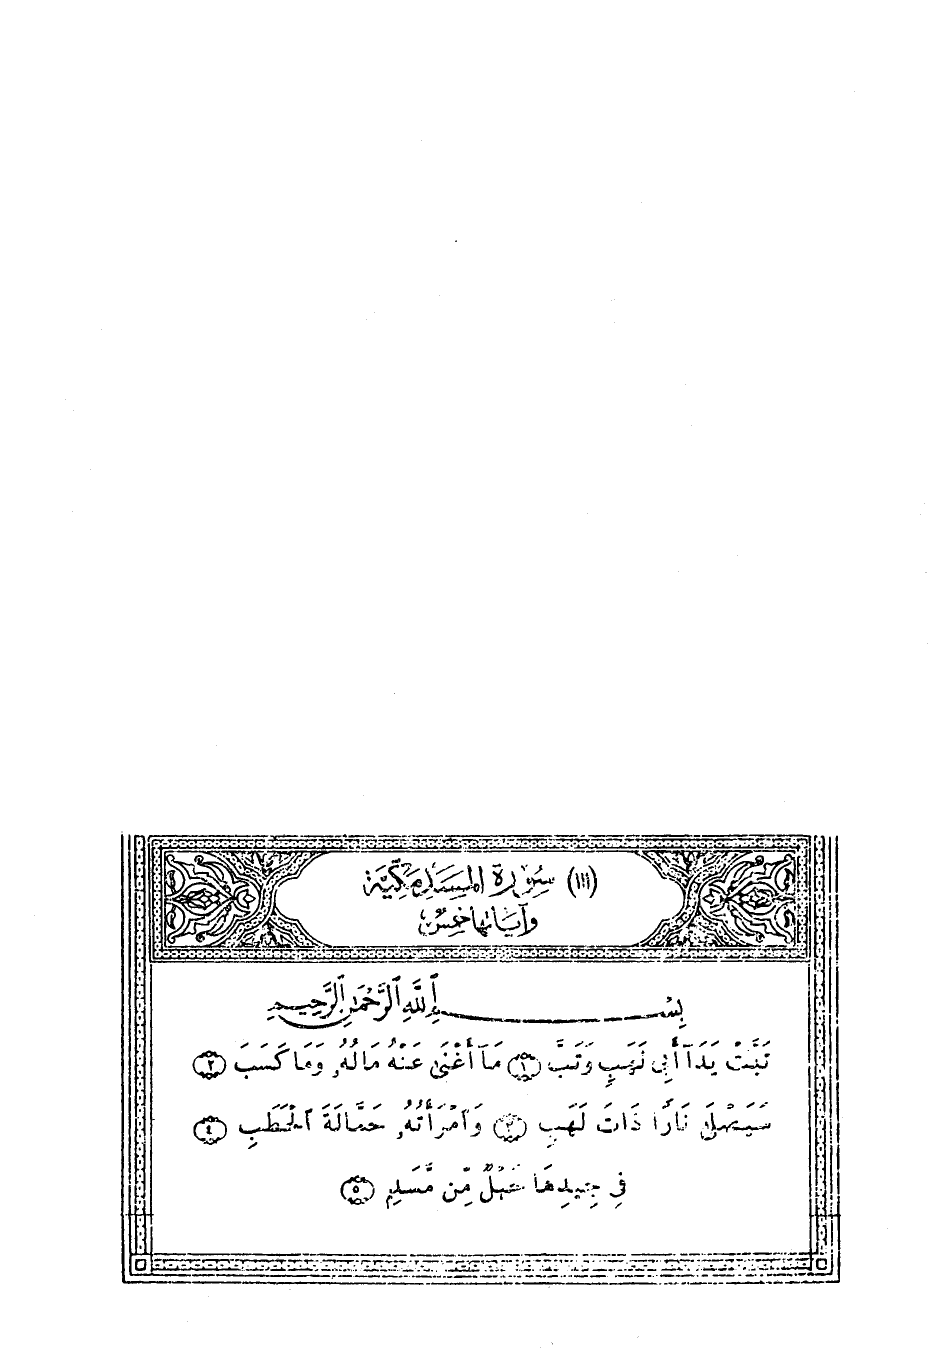 (١١١) سُورَة المسَدِ مَكِّيَّة
وآيَاتها خَمْسٌ
بِسْمِ ٱللَّهِ ٱلرَّحْمَٰنِ ٱلرَّحِيمِ
تَبَّتْ يَدَآ أَبِى لَهَبٍ وَتَبَّ ﴿١﴾ مَآ أَغْنَىٰ عَنْهُ مَالُهُۥ وَمَا كَسَبَ ﴿٢﴾
سَيَصْلَىٰ نَارًا ذَاتَ لَهَبٍ ﴿٣﴾ وَٱمْرَأَتُهُۥ حَمَّالَةَ ٱلْحَطَبِ ﴿٤﴾
فِى جِيدِهَا حَبْلٌ مِّن مَّسَدٍۭ ﴿٥﴾